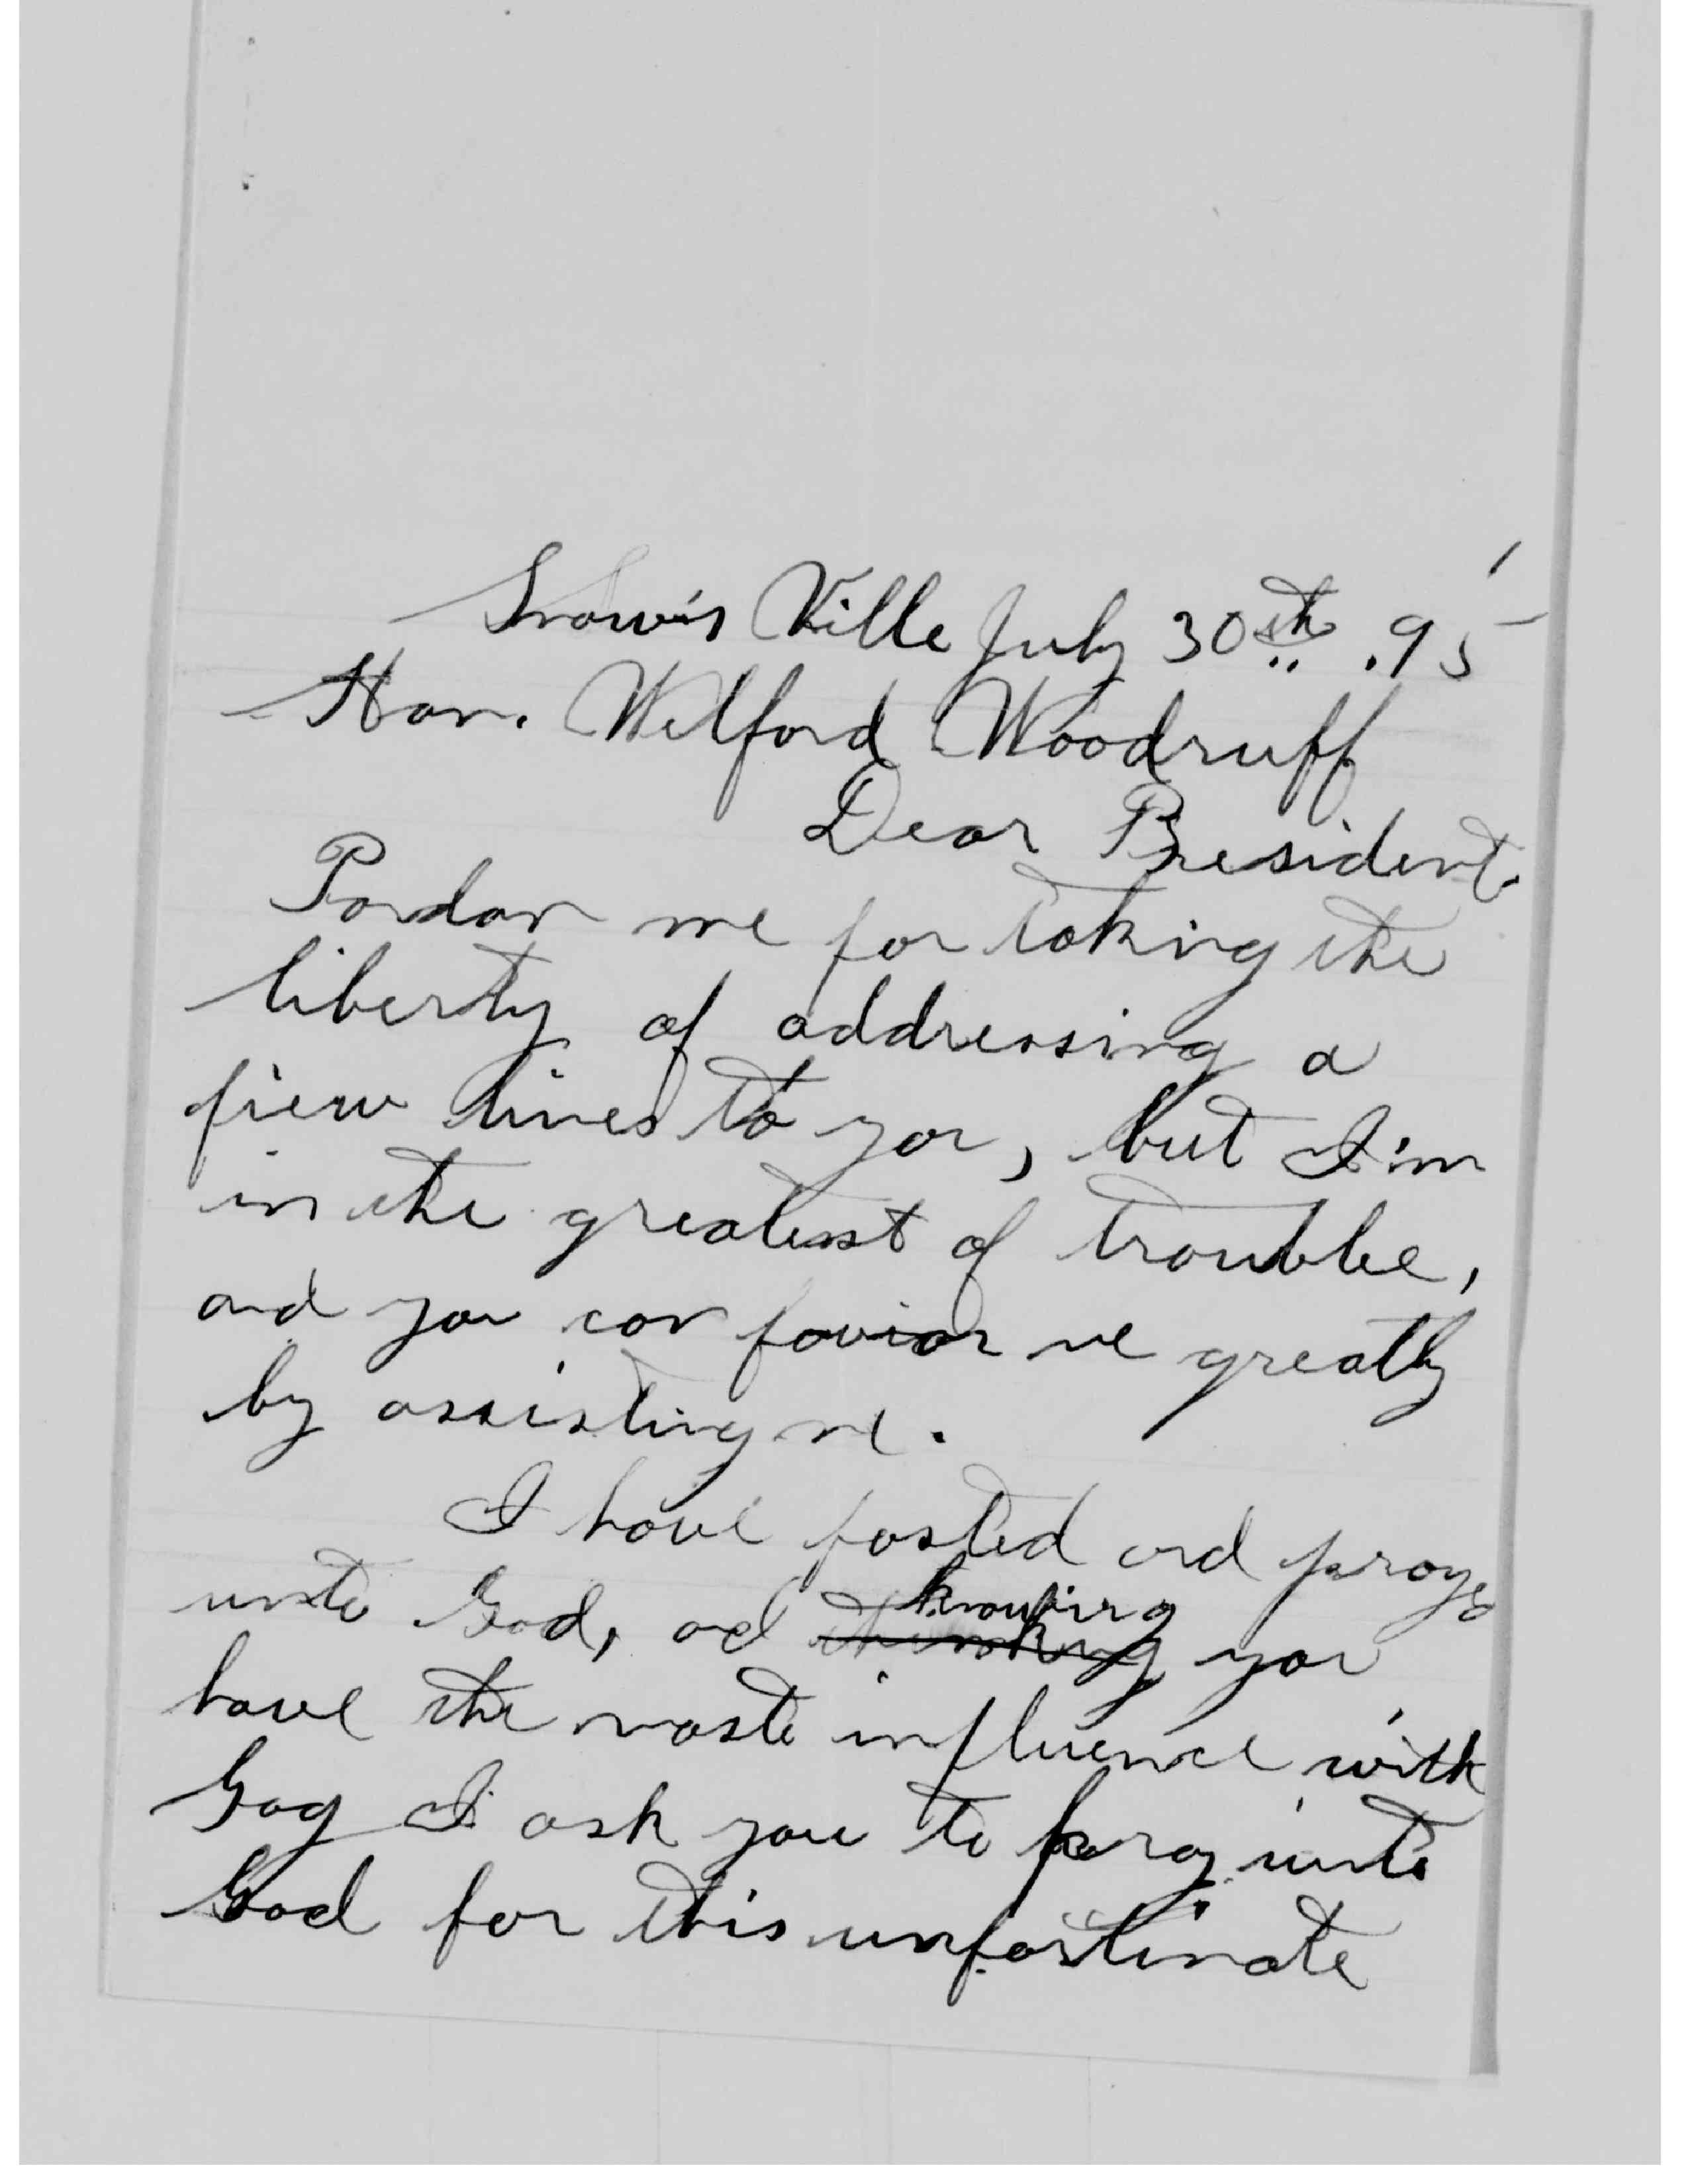 Snow's Ville July 30th .95
Hon. Wilford Woodruff
Dear President.
Pardon me for taking the
liberty of addressing a
fiew lines to you, but I'm
in the greatest of trouble,
and you can favior me greatly
by assisting me.
I have fasted and prayed
knowing
unto God, ad thinking you
have the moste influence with
Gog I ask you to pray unto
God for this unfortinate